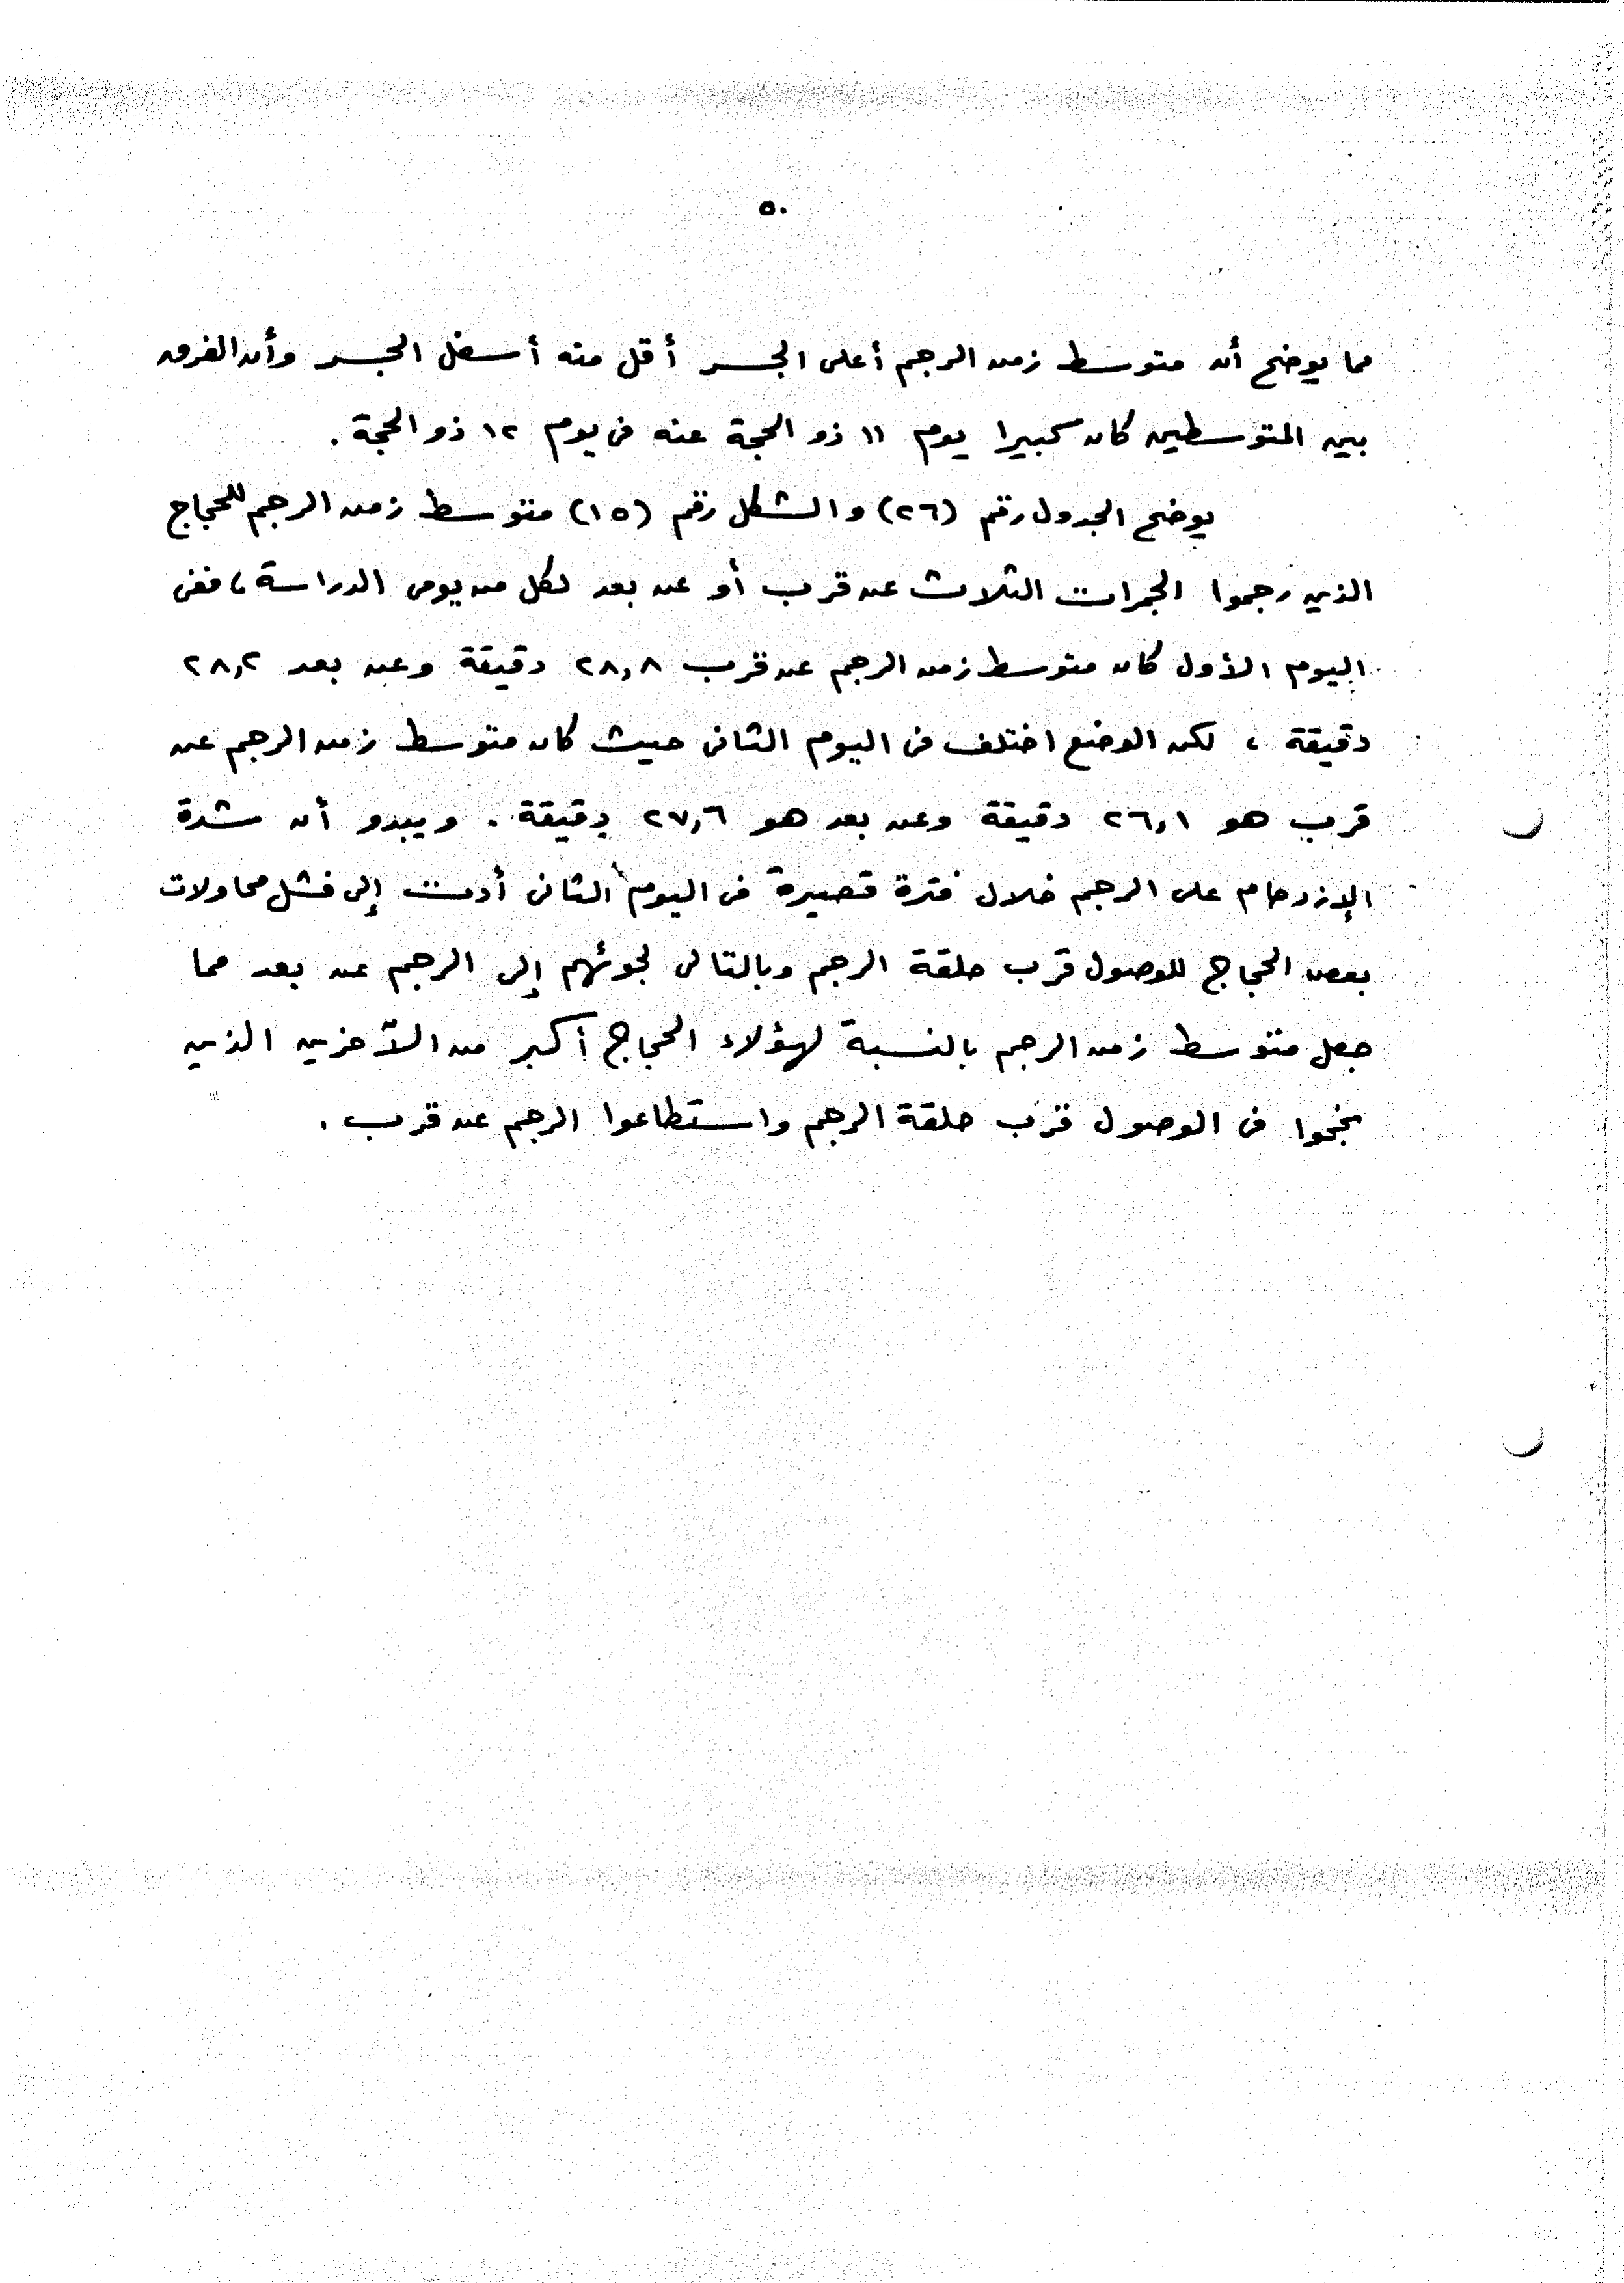 ٥٠
مما يوضح أن متوسط زمن الرجم أعلى الجسر أقل منه أسفل الجسر وأن الفرق
بين المتوسطين كان كبيرا يوم ١١ ذو الحجة عنه فى يوم ١٢ ذو الحجة .
يوضح الجدول رقم (٢٦) والشكل رقم (١٥) متوسط زمن الرجم للحجاج
الذين رجموا الجمرات الثلاث عن قرب أو عن بعد لكل من يومى الدراسة ، ففى
اليوم الأول كان متوسط زمن الرجم عن قرب ٢٨,٨ دقيقة وعن بعد ٢٨,٢
دقيقة ، لكن الوضع اختلف فى اليوم الثانى حيث كان متوسط زمن الرجم عن
قرب هو ٢٦,١ دقيقة وعن بعد هو ٢٧,٦ دقيقة . ويبدو أن شدة
الإزدحام على الرجم خلال فترة قصيرة فى اليوم الثانى أدت إلى فشل محاولات
بعض الحجاج للوصول قرب حلقة الرجم وبالتالى لجوئهم إلى الرجم عن بعد مما
جعل متوسط زمن الرجم بالنسبة لهؤلاء الحجاج أكبر من الآخرين الذين
نجحوا فى الوصول قرب حلقة الرجم واستطاعوا الرجم عن قرب .